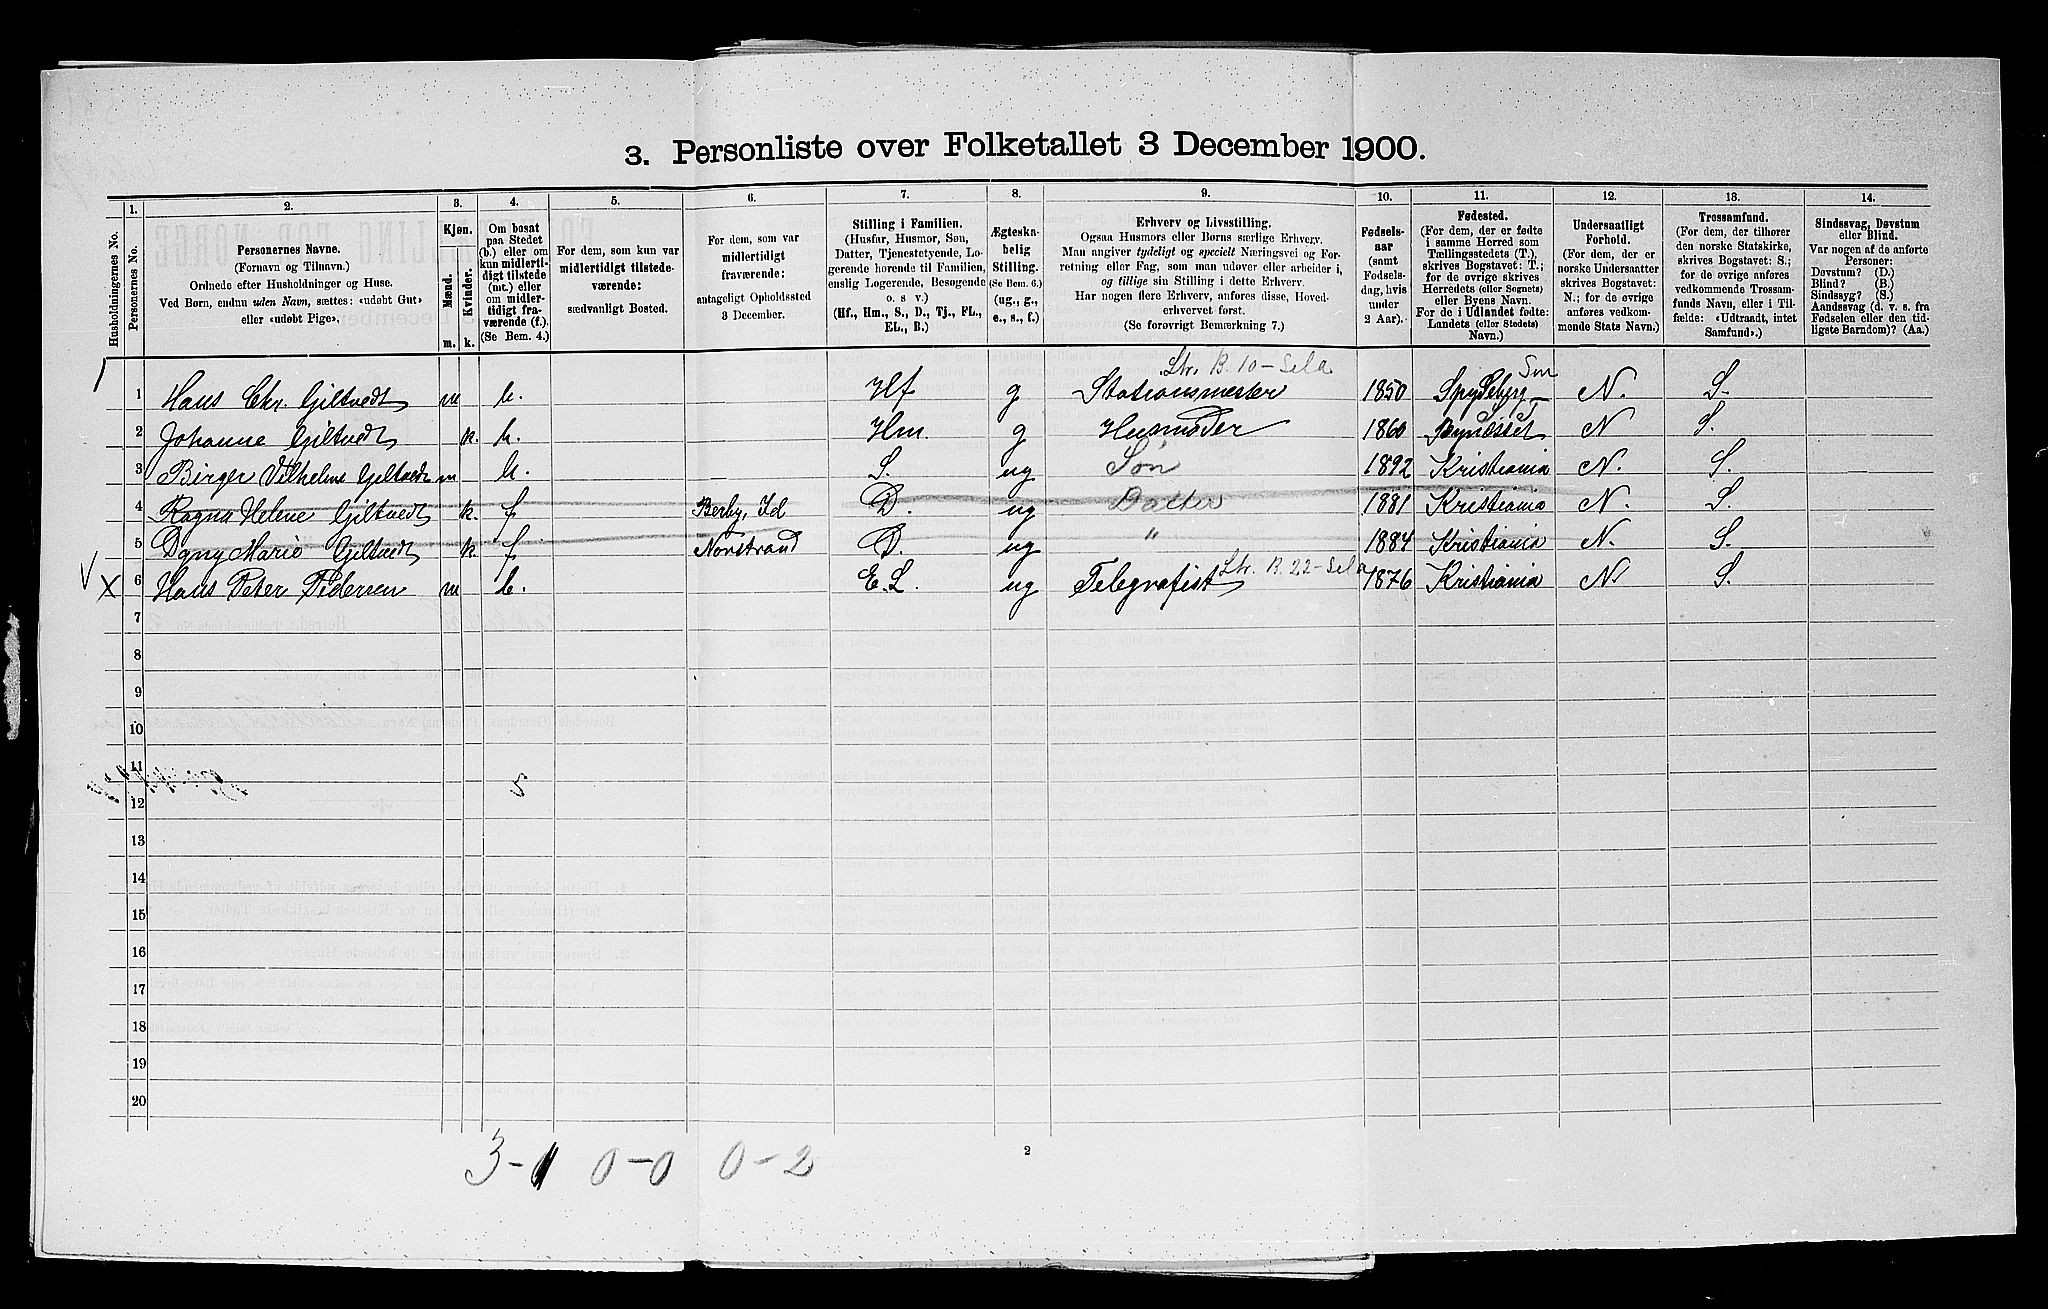 3. Personliste over Folketallet 3 December 1900.
1. 2. 3. 4. 5. 6. 7. 8. 9. 10. 11. 12. 13. 14.
Husholdningernes No.
Personernes No.
Personernes Navne.
(Fornavn og Tilnavn.)
Ordnede efter Husholdninger og Huse.
Ved Børn, endnu uden Navn, sættes: «udøbt Gut»
eller «udøbt Pige».
Kjøn.
Mænd. Kvinder.
m. k.
Om bosat
paa Stedet
(b.) eller om
kun midlerti-
digt tilstede
(mt.) eller
om midler-
tidigt fra-
værende (f.)
(Se Bem. 4.)
For dem, som kun var
midlertidigt tilstede-
værende:
sædvanligt Bosted.
For dem, som var
midlertidigt
fraværende:
antageligt Opholdssted
3 December.
Stilling i Familien.
(Husfar, Husmor, Søn,
Datter, Tjenestetyende, Lo-
gerende hørende til Familien,
enslig Logerende, Besøgende
o. s v.)
(Hf., Hm., S., D., Tj., FL.,
EL., B.)
Ægteska-
belig
Stilling.
(Se Bem. 6.)
(ug., g.,
e., s., f.)
Erhverv og Livsstilling.
Ogsaa Husmors eller Børns særlige Erhverv.
Man angiver tydeligt og specielt Næringsvei og For-
retning eller Fag, som man udøver eller arbeider i,
og tillige sin Stilling i dette Erhverv.
Har nogen flere Erhverv, anføres disse, Hoved-
erhvervet først.
(Se forøvrigt Bemærkning 7.)
Fødsels-
aar
(samt
Fødsels-
dag, hvis
under
2 Aar).
Fødested.
(For dem, der er fødte
i samme Herred som
Tællingsstedets (T.),
skrives Bogstavet: T.;
for de øvrige skrives
Herredets (eller Sognets)
eller Byens Navn.
For de i Udlandet fødte:
Landets (eller Stedets)
Navn.)
Undersaatligt
Forhold.
(For dem, der er
norske Undersaatter
skrives Bogstavet:
N.; for de øvrige
anføres vedkom-
mende Stats Navn.)
Trossamfund.
(For dem, der tilhører
den norske Statskirke,
skrives Bogstavet: S.;
for de øvrige anføres
vedkommende Trossam-
funds Navn, eller i Til-
fælde: «Udtraadt, intet
Samfund».)
Sindssvag, Døvstum
eller Blind.
Var nogen af de anførte
Personer:
Døvstum? (D.)
Blind? (B.)
Sindssyg? (S.)
Aandssvag (d. v. s. fra
Fødselen eller den tid-
ligste Barndom)? (Aa.)
1 Hans Chr. Giltvedt m b. Hf g Stationsmester 1850 Spydeberg N. S.
2 Johanne Giltvedt k. b. Hm. g Husmoder 1860 Bynesset N S.
3 Birger Vilhelm Giltvedt m b. S. ug Søn 1892 Kristiania N. S.
4 Ragna Helene Giltvedt k. f Berby, Id D. ug Datter 1881 Kristiania N. S.
5 Dgny Marie Giltvedt k. f Norstrand D. ug " 1884 Kristiania N. S.
6 Hans Peter Pedersen m b. E.L. ug Telegrafist 1876 Kristiania N S.
7
8
9
10
11
12
13
14
15
16
17
18
19
20
5
3-1 0-0 0-2
2